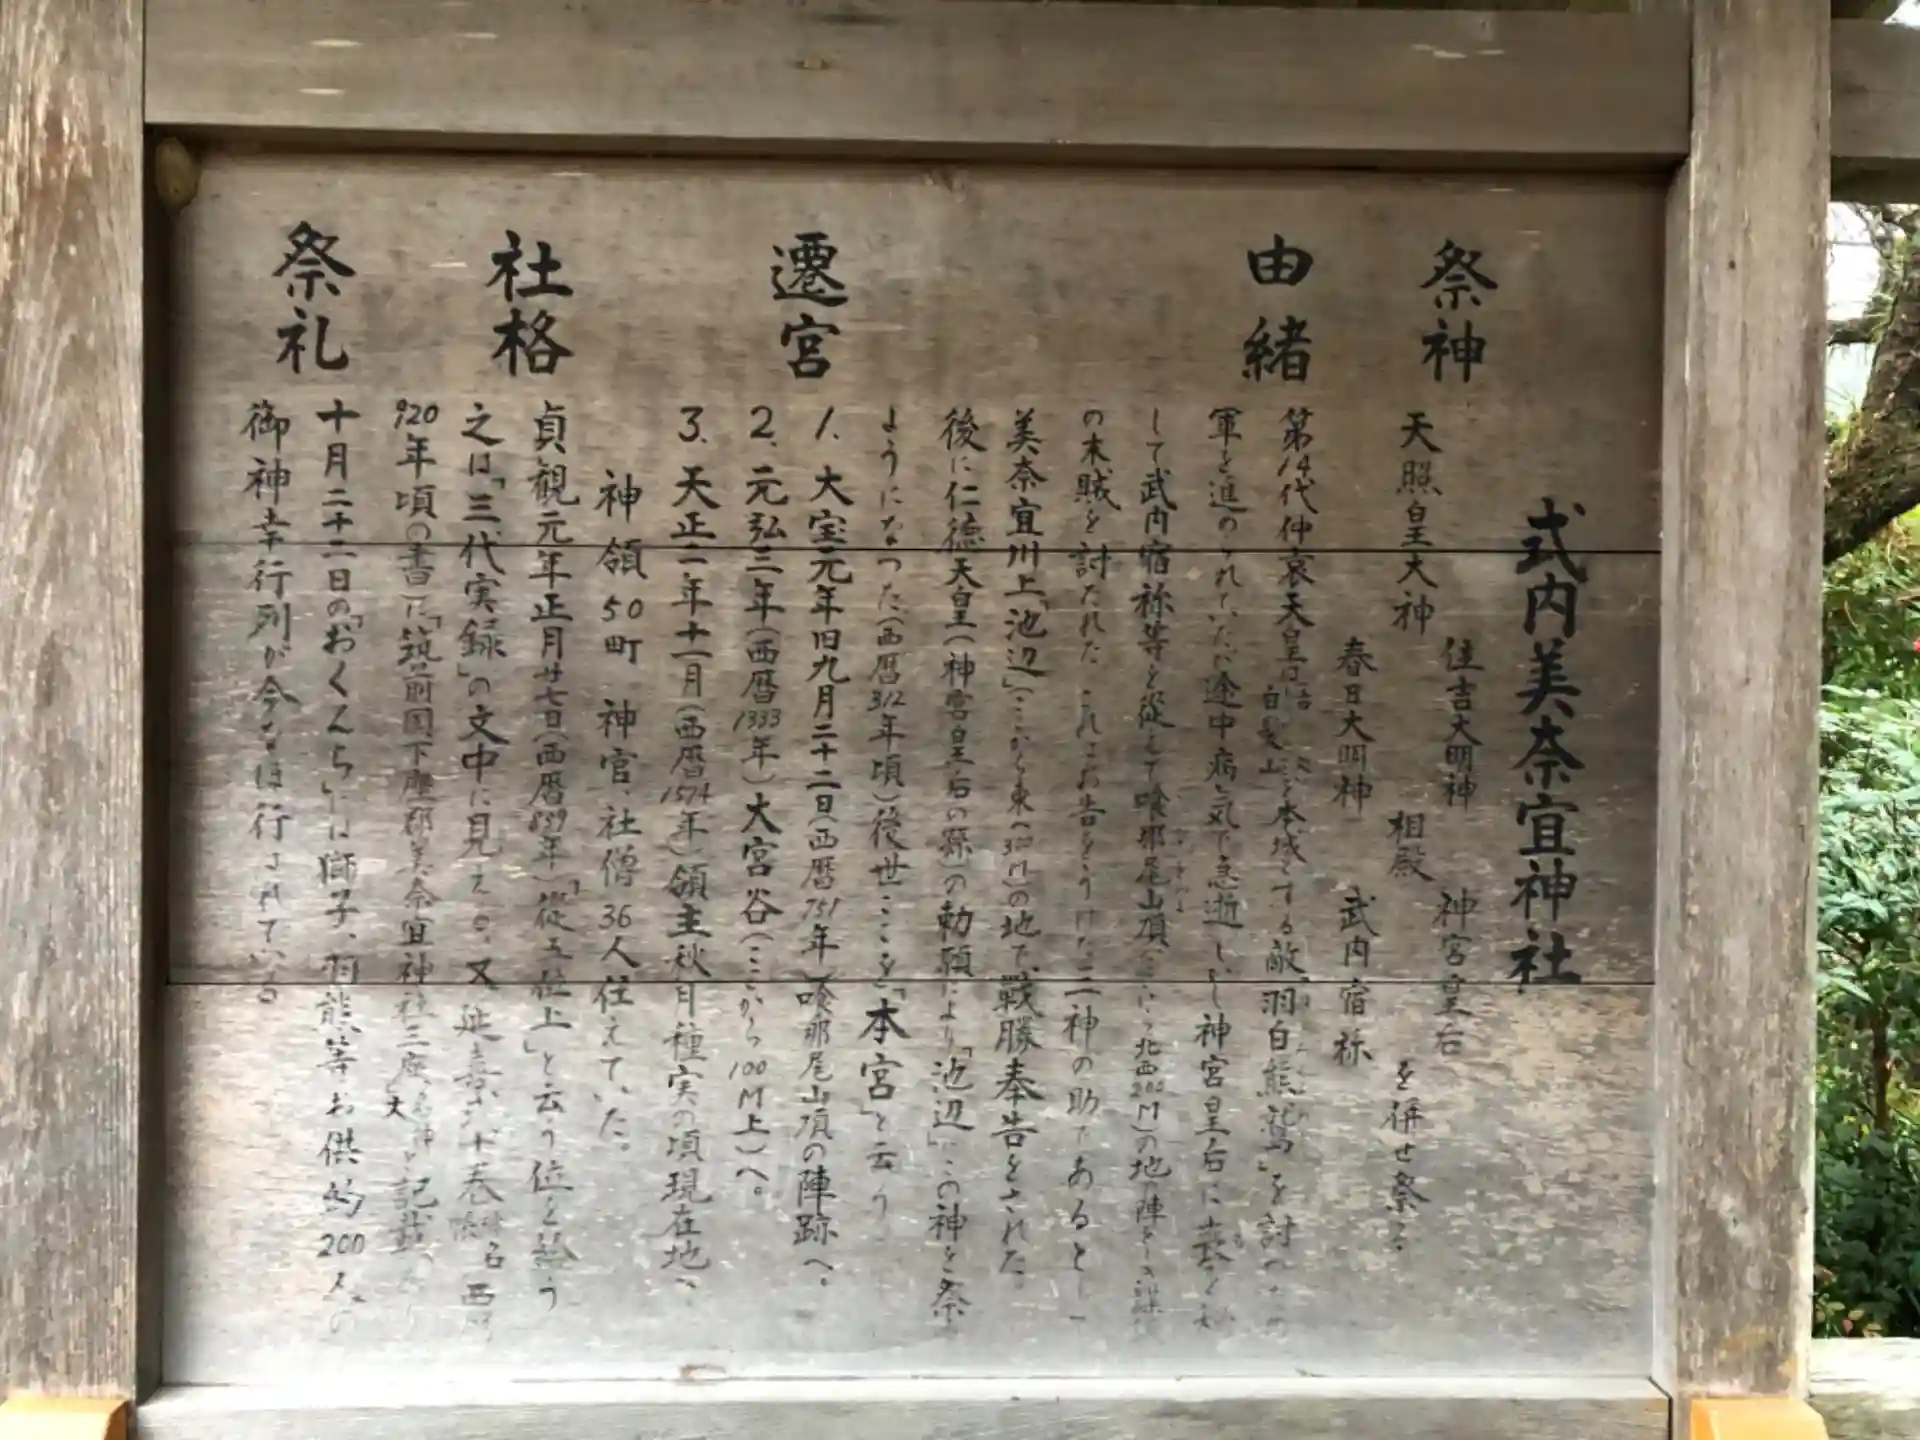 式内美奈宜神社
祭神
天照皇大神
住吉大明神
春日大明神
相殿
神宮皇后
武内宿祢
を併せ祭る
由緒
第14代仲哀天皇は 白髪山 を本城とする敵、羽白熊鷲」を討つための
軍を進められていたが途中病気で急逝し 神宮皇后は喪を秘
して武内宿祢等を従えて喰那尾山頂 北西200M)の地 陣
の末賊を討たれた これはお告をうけた二神の助であるとし
美奈宜川上「池辺」(ここから東へ300M)の地で、戦勝奉告をされた。
後に仁徳天皇(神宮皇后の孫)の勅願により「池辺」にこの神を祭
ようになつた(西暦312年頃)後世ここを「本宮」と云う
遷宮
1、大宝元年旧九月二十二日(西暦751年)喰那尾山頂の陣跡へ。
2、元弘三年(西暦1333年)大宮谷(ここから100M上)へ。
3、天正二年十一月(西暦1574年)領主秋月種実の頃現在地へ
神領50町 神官、社僧36人仕えていた。
社格
貞観元年正月廿七日(西暦859年)「従五位上」と云う位を給う
之は「三代実録」の文中に見える。又延喜式十巻 名 西
920年頃の書)に「筑前国下座郡美奈宜神社三座」名神大と記載
祭礼
十月二十二日の「おくんち」には獅子、羽熊等お供約200人の
御神幸行列が今なほ行はれている